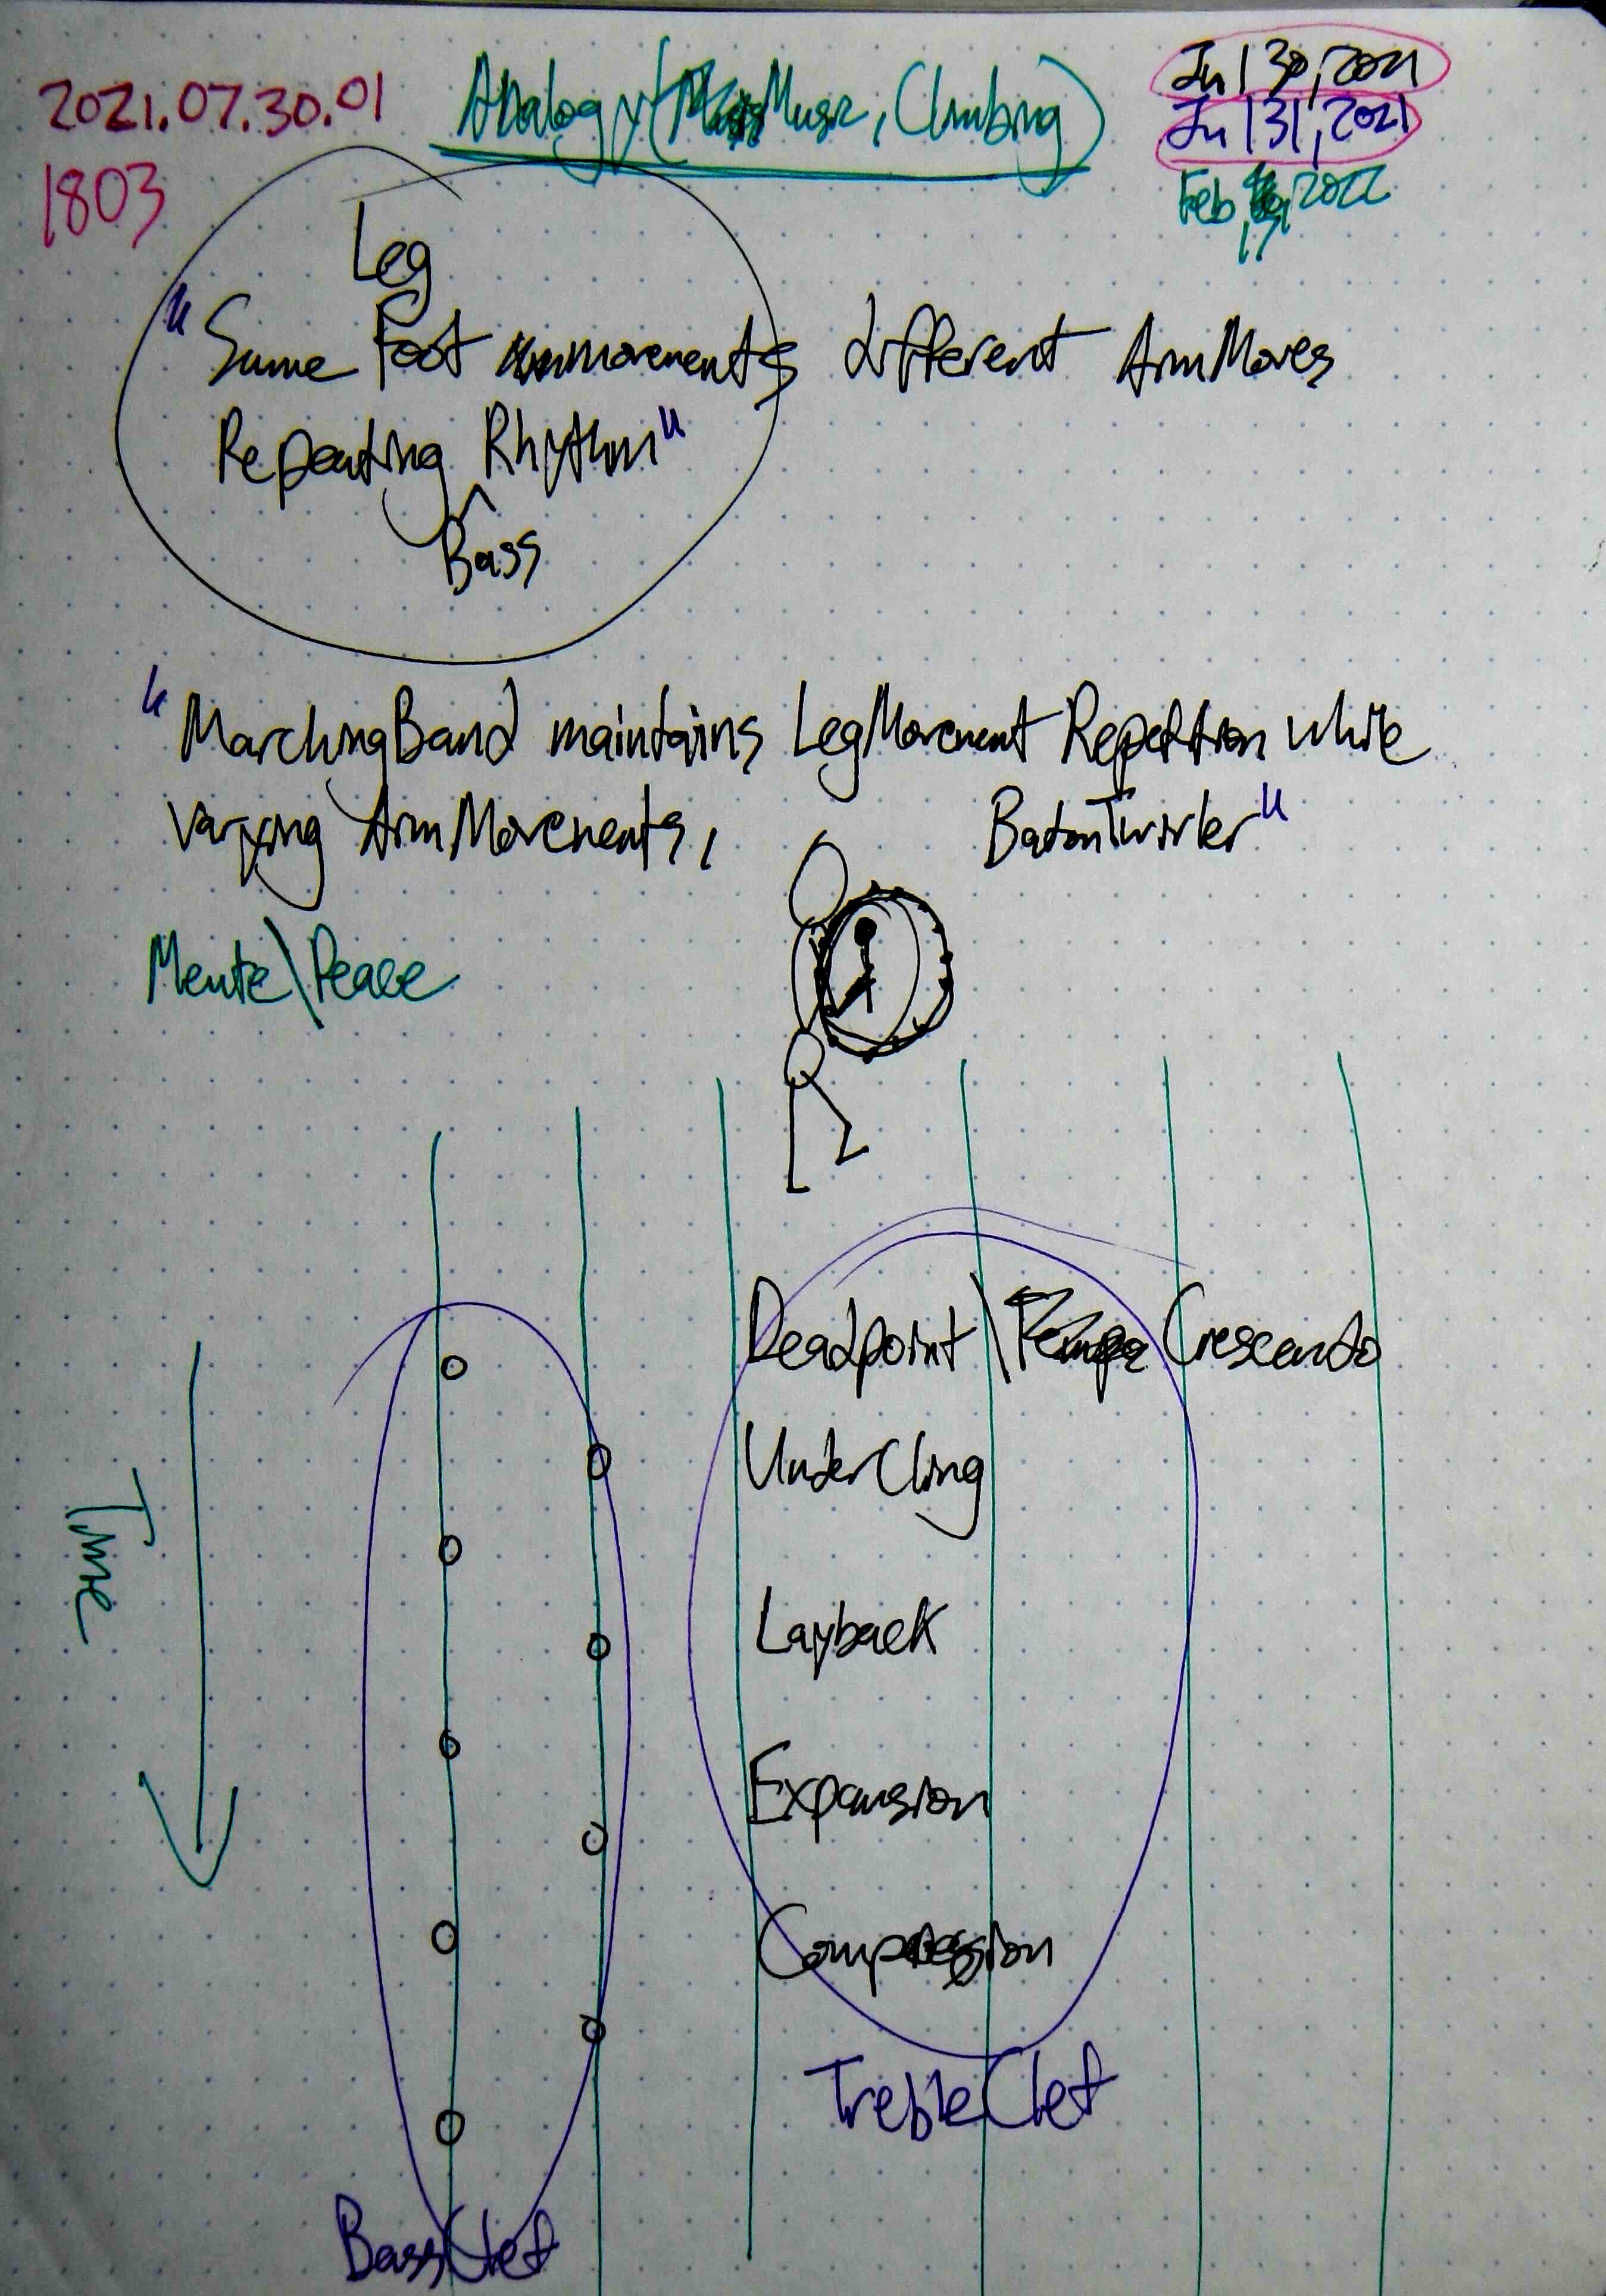 2021.07.30.01
1803
Analogy(Music, Climbing)
Jul 30, 2021
Jul 31, 2021
Feb 15, 2022
Leg
"Same Foot movements different ArmMoves
Repeating Rhythm"
Bass
"MarchingBand maintains LegMovement Repetition while
varying ArmMovements, BatonTwirler"
Mente\Peace
Time
Deadpoint\ Crescendo
UnderCling
Layback
Expansion
Compression
TrebleClef
BassClef